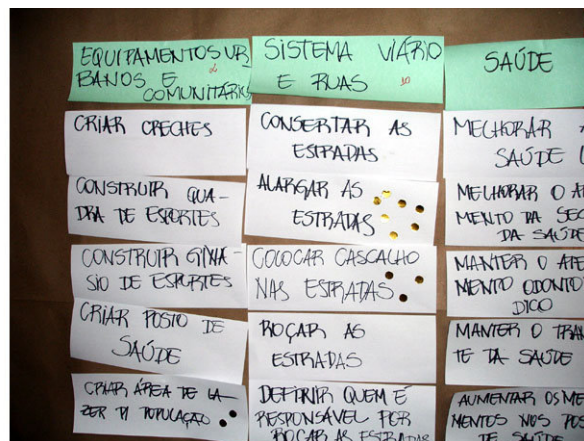 EQUIPAMENTOS UR
BANOS E
COMUNITÁRIOS
CRIAR CRECHES
CONSTRUIR QUA-
DRA DE ESPORTES
CONSTRUIR GINÁ-
SIO DE ESPORTES
CRIAR POSTO DE
SAÚDE
CRIAR ÁREA DE LA-
ZER P/ POPULAÇÃO
SISTEMA VIÁRIO
E RUAS
10
CONSERTAR AS
ESTRADAS
ALARGAR AS
ESTRADAS
COLOCAR CASCALHO
NAS ESTRADAS
ROÇAR AS
ESTRADAS
DEFINIR QUEM É
RESPONSÁVEL POR
ROÇAR AS ESTRADAS
SAÚDE
MELHORAR
SAÚDE
MELHORAR O A
MENTO DA SEC
DA SAÚDE
MANTER O ATE
MENTO ODONTO
DICO
MANTER O TRAN
TE DA SAÚDE
AUMENTAR OS ME
MENTOS NOS PO
DE SAÚDE